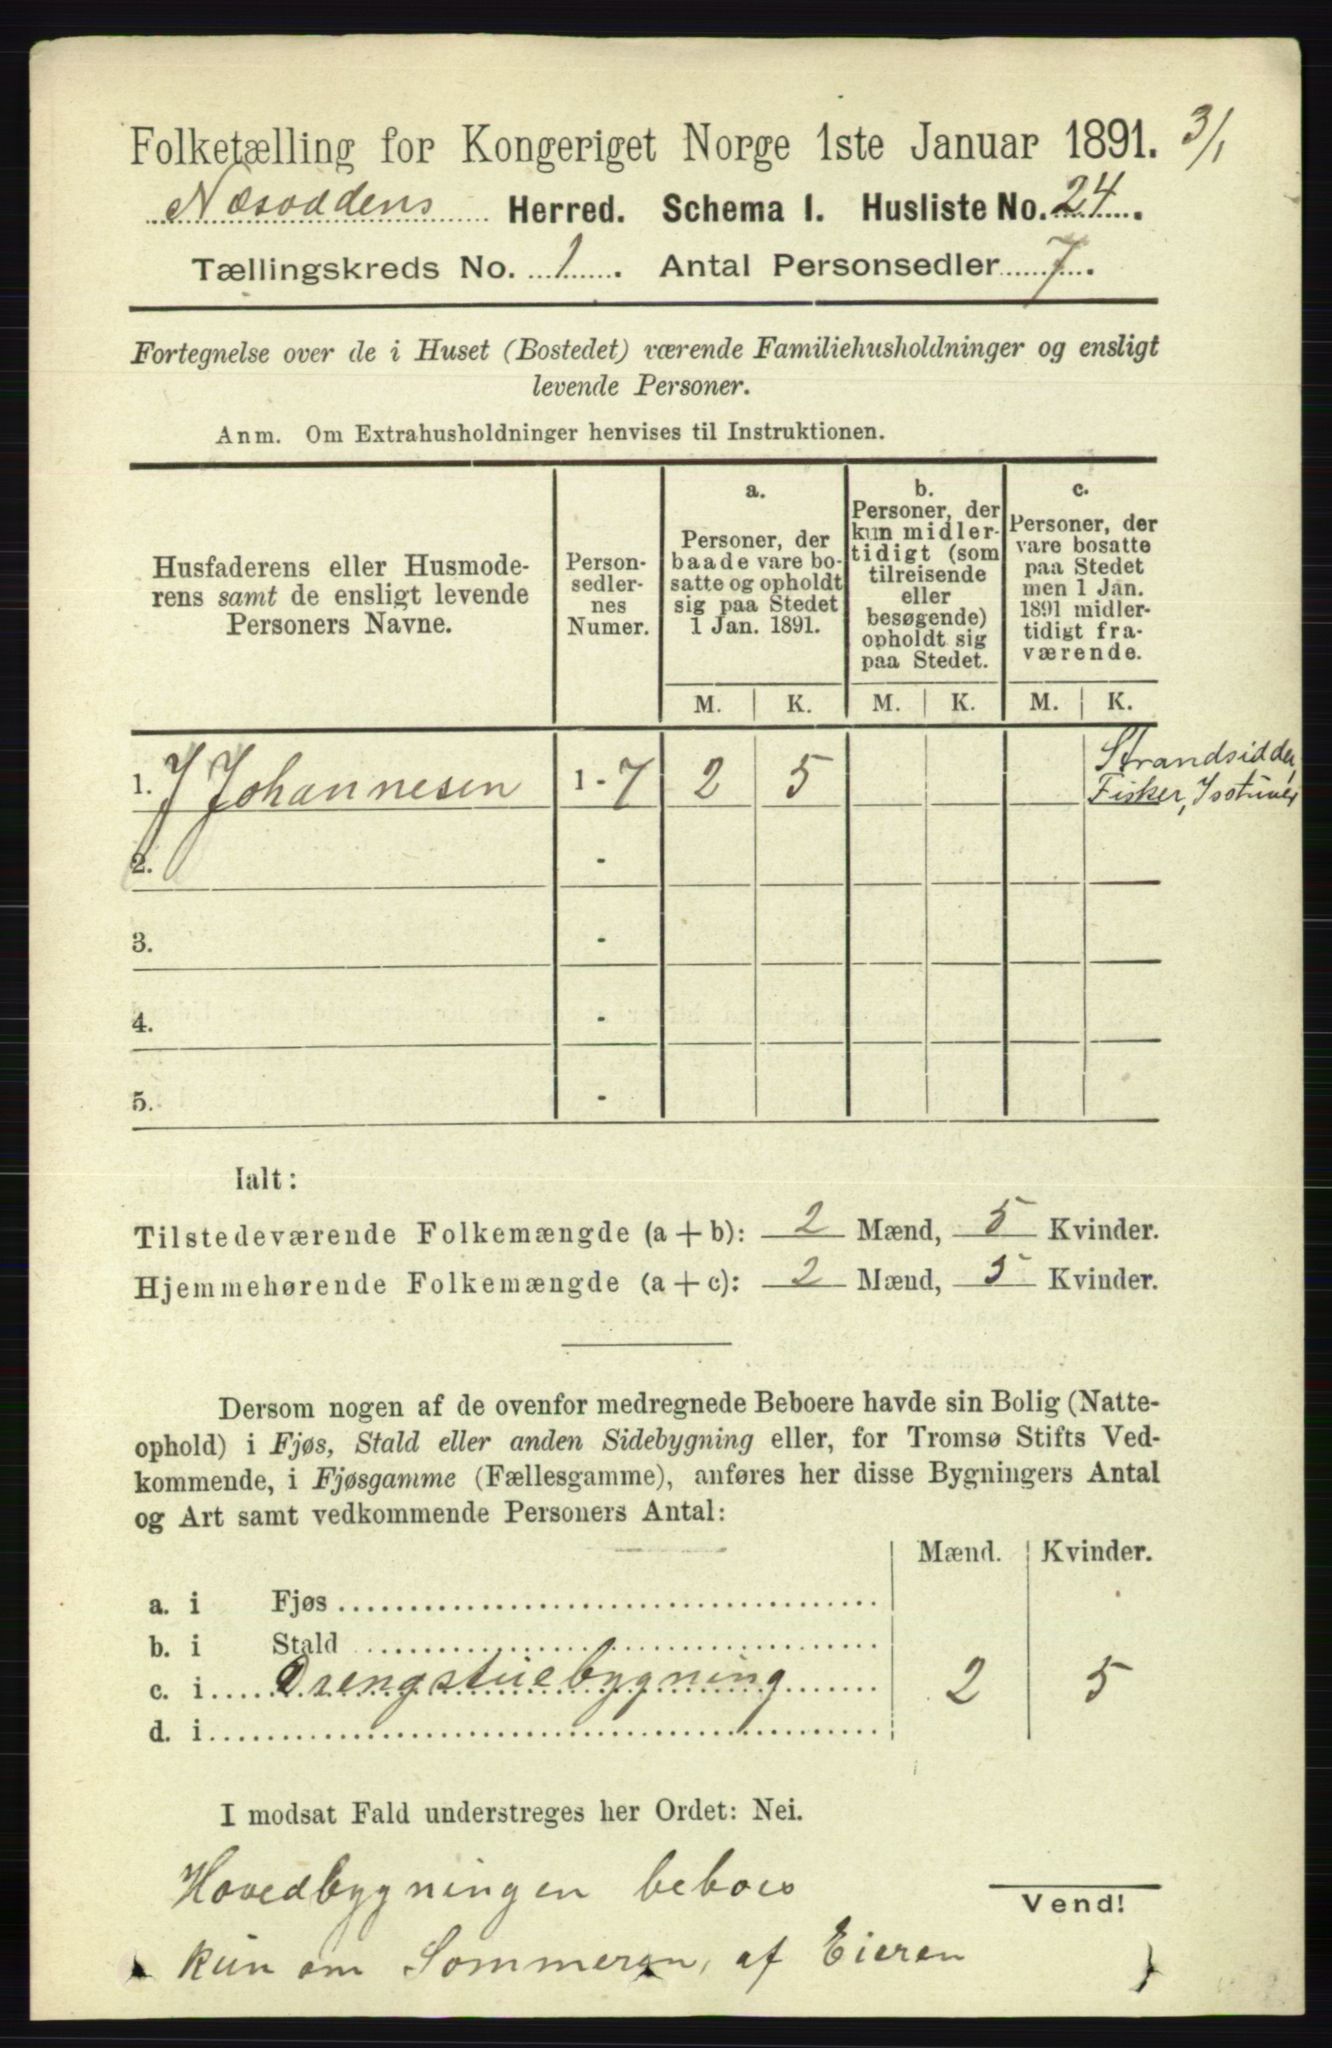 Folketælling for Kongeriget Norge 1ste Januar 1891. 3/1
Næsoddens Herred. Schema I. Husliste No. 24.
Tællingskreds No. 1. Antal Personsedler 7.
Fortegnelse over de i Huset (Bostedet) værende Familiehusholdninger og ensligt
levende Personer.
Anm. Om Extrahusholdninger henvises til Instruktionen.
Husfaderens eller Husmode-
rens samt de ensligt levende
Personers Navne.
Person-
sedler-
nes
Numer.
a.
Personer, der
baade vare bo-
satte og opholdt
sig paa Stedet
1 Jan. 1891.
b.
Personer, der
kun midler-
tidigt (som
tilreisende
eller
besøgende)
opholdt sig
paa Stedet.
c.
Personer, der
vare bosatte
paa Stedet
men 1 Jan.
1891 midler-
tidigt fra-
værende.
M. K. M. K. M. K.
1. J Johannesen 1 - 7 2 5
Strandsidder,
Fisker,
2. -
3. -
4. -
5. -
Ialt:
Tilstedeværende Folkemængde (a + b): 2 Mænd, 5 Kvinder.
Hjemmehørende Folkemængde (a + c): 2 Mænd, 5 Kvinder.
Dersom nogen af de ovenfor medregnede Beboere havde sin Bolig (Natte-
ophold) i Fjøs, Stald eller anden Sidebygning eller, for Tromsø Stifts Ved-
kommende, i Fjøsgamme (Fællesgamme), anføres her disse Bygningers Antal
og Art samt vedkommende Personers Antal:
Mænd. Kvinder.
a. i Fjøs
b. i Stald
c. i Drengstuebygning 2 5
d. i
I modsat Fald understreges her Ordet: Nei.
Hovedbygningen beboes
Vend!
kun om Sommeren, af Eieren